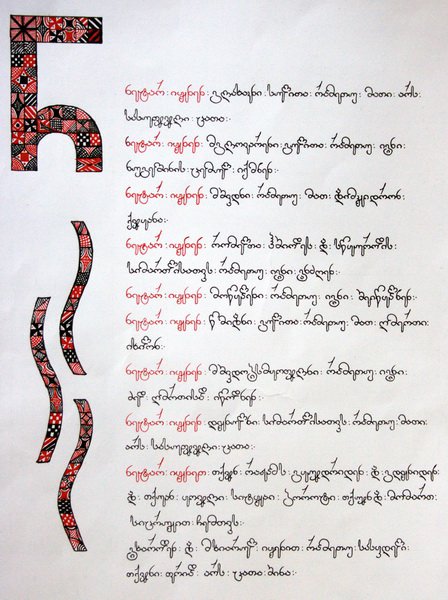 ნ
ნეტარ : იყვნენ : გლახაკნი : სულითა : რამეთუ : მათი : არს :
სასუფეველი : ცათა :·
ნეტარ : იყვნენ : მგლოვარენი : გულითა : რამეთუ : იგინი :
ნუგეშინის : ცემულ : იქმნნენ :·
ნეტარ : იყვნენ : მშვიდნი : რამეთუ : მათ : დაიმკვიდრონ :
ქვეყანა :·
ნეტარ : იყვნენ : რომელთა : ჰშიოდის : და : სწყუროდის :
სიმართლისათვის : რამეთუ : იგინი : განძღნენ :·
ნეტარ : იყვნენ : მოწყალენი : რამეთუ : იგინი : შეიწყალნენ :·
ნეტარ : იყვნენ : წმიდანი : გულითა : რამეთუ : მათ : ღმერთი :
იხილონ :·
ნეტარ : იყვნენ : მშვიდობისმყოფელნი : რამეთუ : იგინი :
ძედ : ღმრთისად : იწოდნენ :·
ნეტარ : იყვნენ : დევნულნი : სიმართლისათვის : რამეთუ : მათი :
არს : სასუფეველი : ცათა :·
ნეტარ : იყვნეთ : თქვენ : რაჟამს : გყვედრიდენ : და : გდევნიდენ :
და : თქვან : ყოველი : სიტყვა : ბოროტი : თქვენდა : მომართ :
სიცრუვით : ჩემთვის :·
გიხაროდენ : და : მხიარულ : იყვენით : რამეთუ : სასყიდელი :
თქვენი : დიდ : არს : ცათა : შინა :·